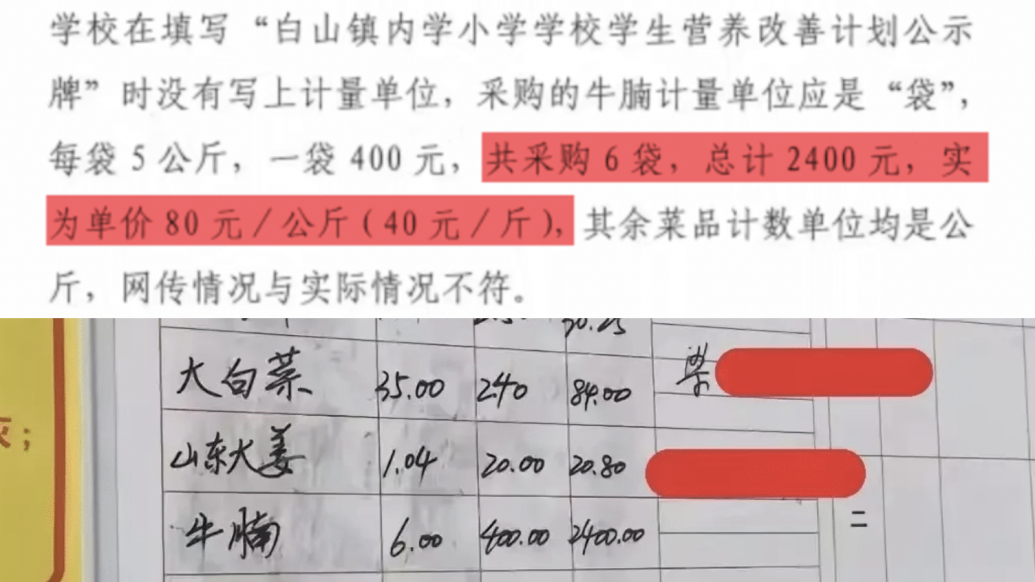 学校在填写“白山镇内学小学学校学生营养改善计划公示
牌”时没有写上计量单位，采购的牛腩计量单位应是“袋”，
每袋 5 公斤，一袋 400 元，共采购 6 袋，总计 2400 元，实
为单价 80 元／公斤（40 元／斤），其余菜品计数单位均是公
斤，网传情况与实际情况不符。
大白菜 35.00 240 84.00
灰；
山东大姜 1.04 20.00 20.80
牛腩 6.00 400.00 2400.00
二